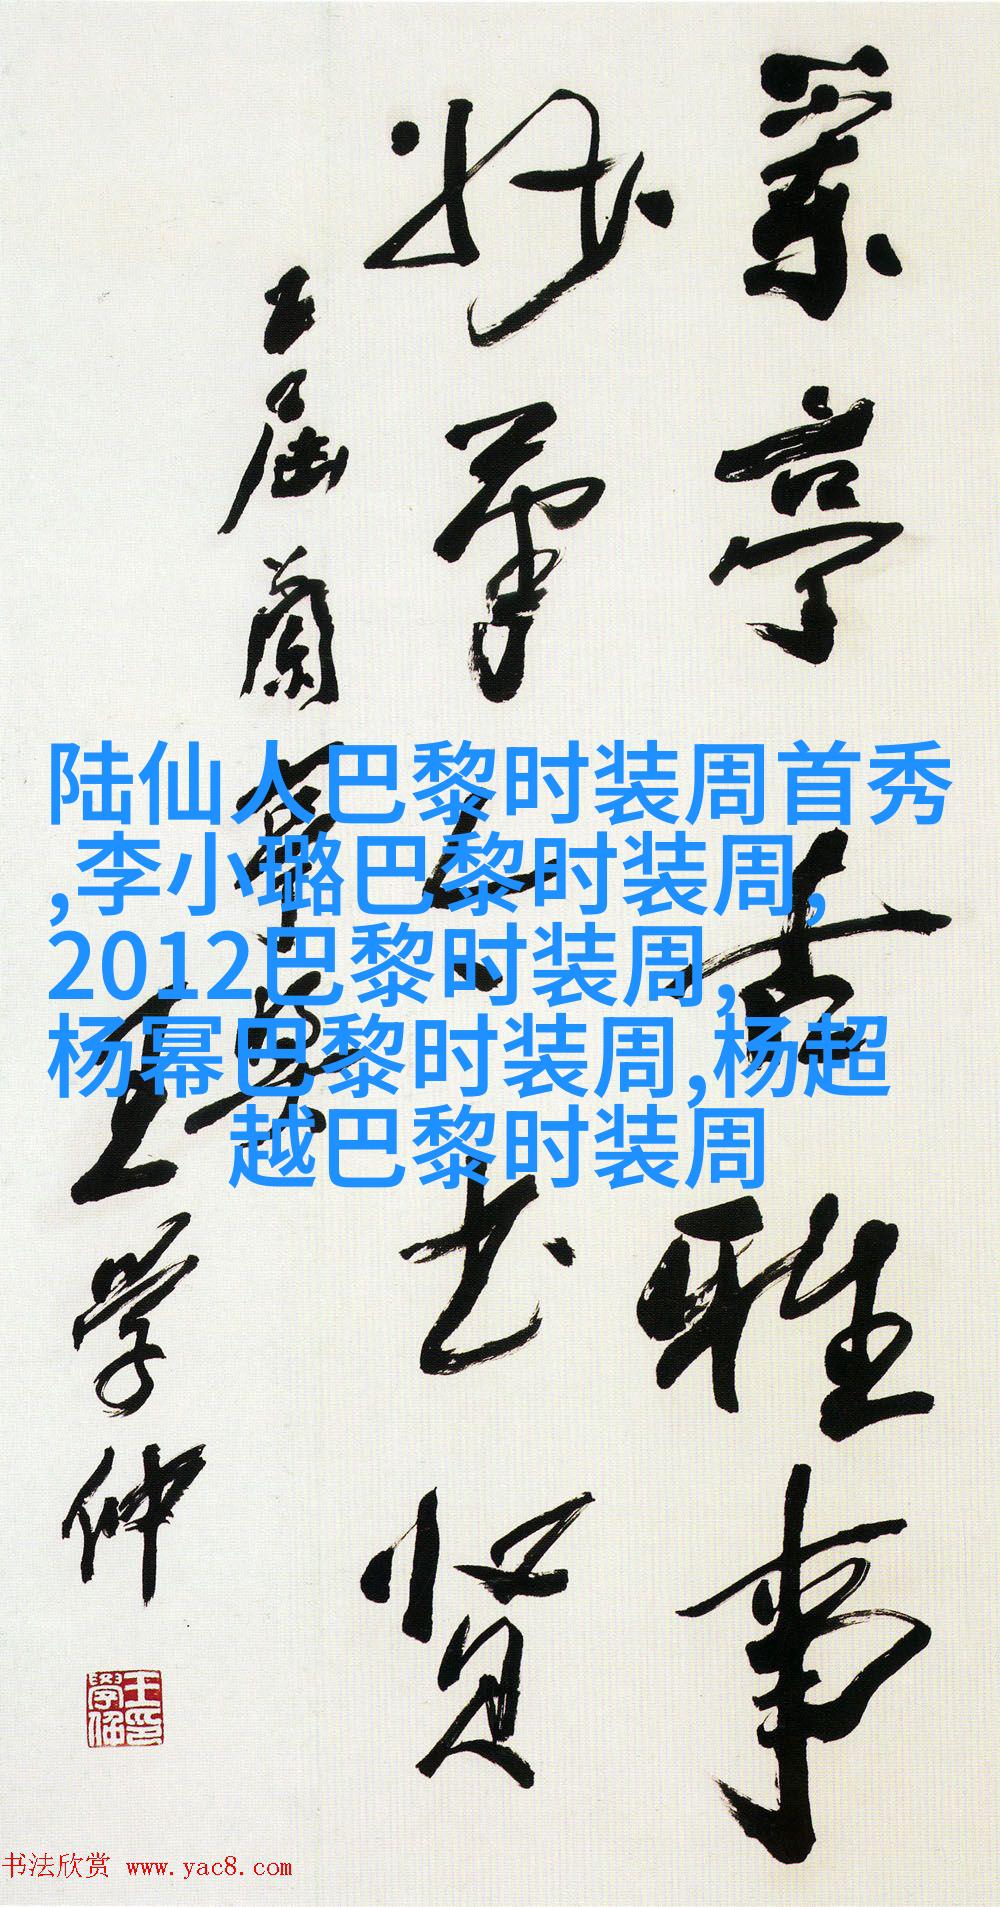 兰亭亭雅事
妙笔
书贤
五届兰亭奖
王学仲
陆仙人巴黎时装周首秀
,李小璐巴黎时装周,
2012巴黎时装周,
杨幂巴黎时装周,杨超
越巴黎时装周
王印學仲
书法欣赏 www.yac8.com